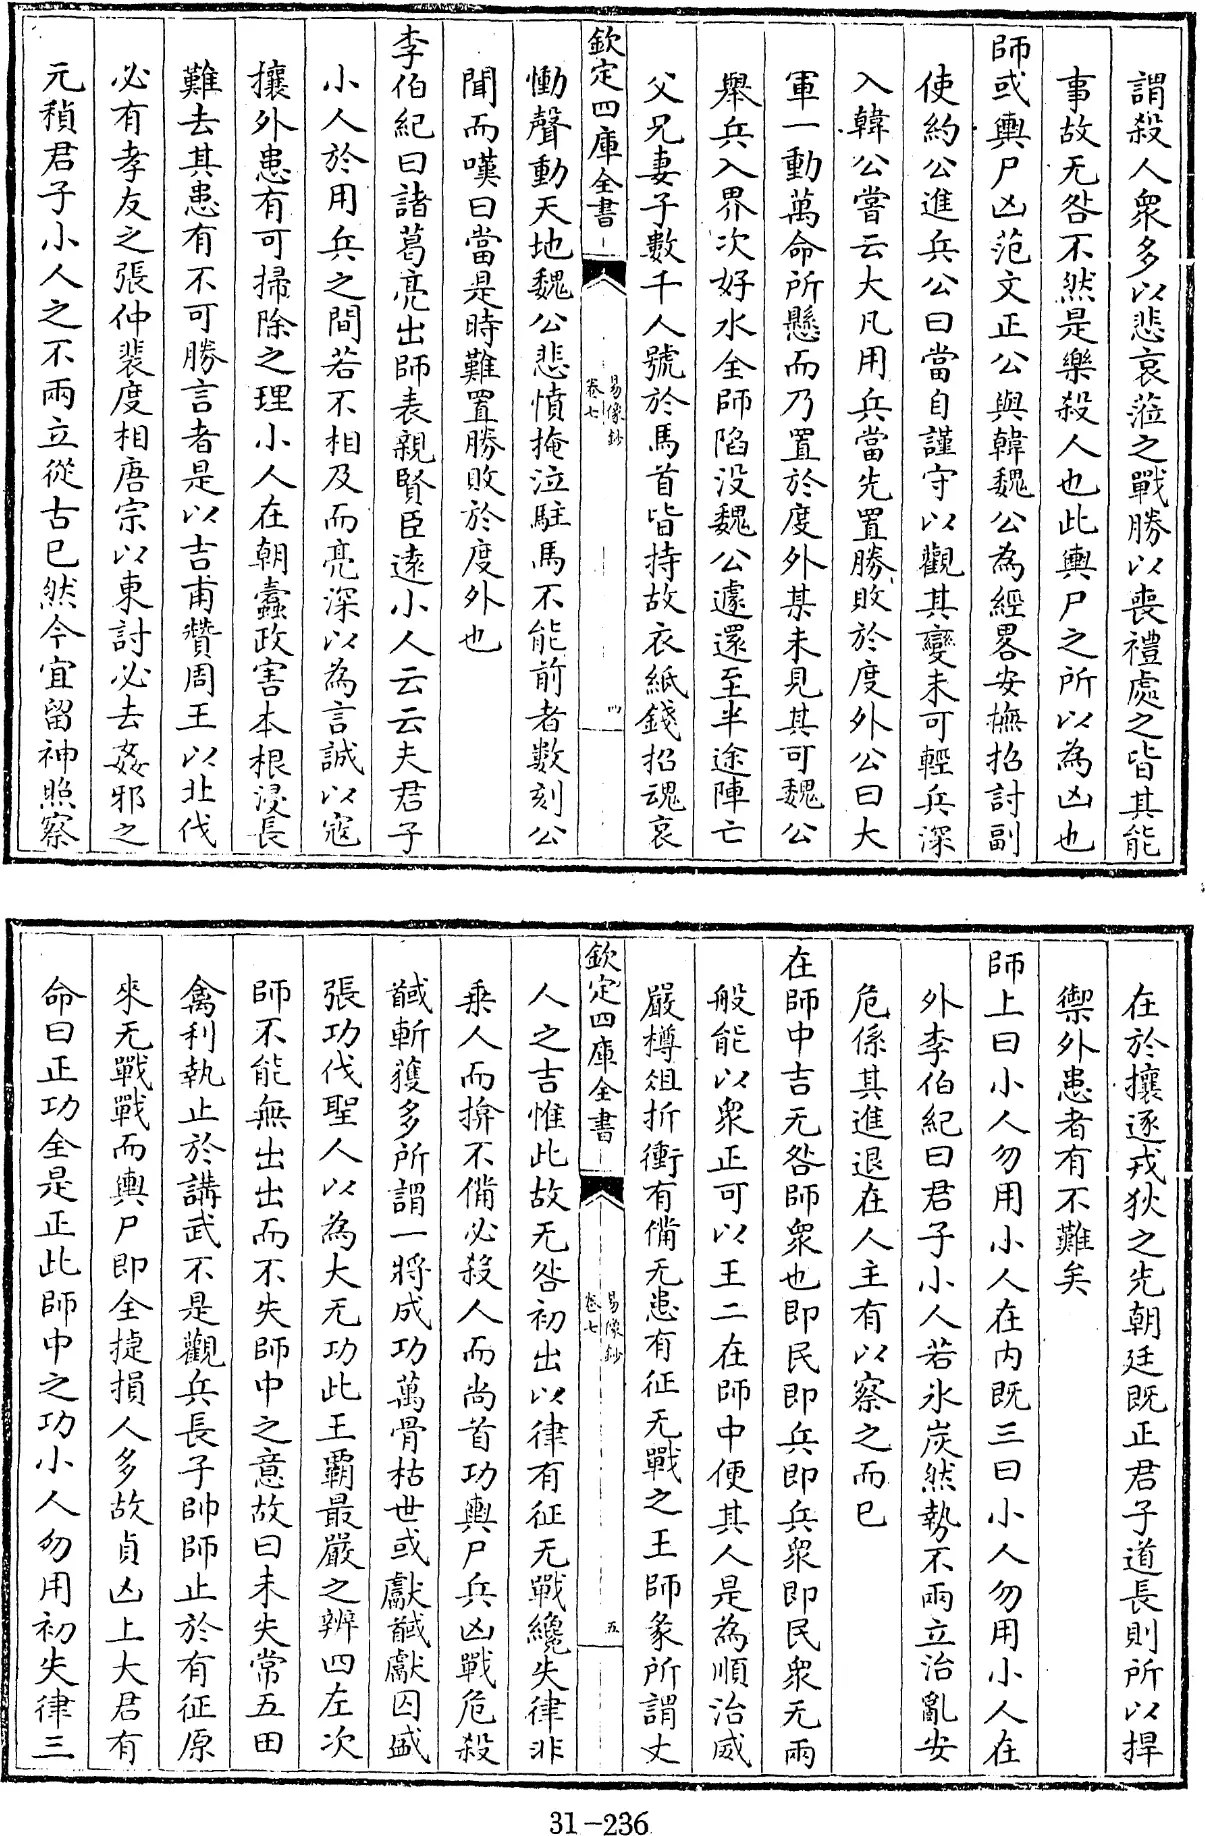 謂殺人衆多以悲哀蒞之戰勝以喪禮處之皆其能
事故无咎不然是樂殺人也此輿尸之所以為凶也
師或輿尸凶范文正公與韓魏公為經畧安撫招討副
使約公進兵公曰當自謹守以觀其變未可輕兵深
入韓公嘗云大凡用兵當先置勝敗於度外公曰大
軍一動萬命所懸而乃置於度外某未見其可魏公
舉兵入界次好水全師陷没魏公遽還至半途陣亡
父兄妻子數千人號於馬首皆持故衣紙錢招魂哀
欽定四庫全書
易像鈔
卷七
四
慟聲動天地魏公悲憤掩泣駐馬不能前者數刻公
聞而嘆曰當是時難置勝敗於度外也
李伯紀曰諸葛亮出師表親賢臣遠小人云云夫君子
小人於用兵之間若不相及而亮深以為言誠以寇
攘外患有可掃除之理小人在朝蠹政害本根浸長
難去其患有不可勝言者是以吉甫贊周王以北伐
必有孝友之張仲裴度相唐宗以東討必去姦邪之
元稹君子小人之不兩立從古已然今宜留神照察
在於攘逐戎狄之先朝廷既正君子道長則所以捍
禦外患者有不難矣
師上曰小人勿用小人在内既三曰小人勿用小人在
外李伯紀曰君子小人若氷炭然勢不兩立治亂安
危係其進退在人主有以察之而已
在師中吉无咎師衆也即民即兵即兵衆即民衆无兩
般能以衆正可以王二在師中便其人是為順治威
嚴樽俎折衝有備无患有征无戰之王師彖所謂丈
欽定四庫全書
易像鈔
卷七
五
人之吉惟此故无咎初出以律有征无戰纔失律非
乗人而揜不備必殺人而尚首功輿尸兵凶戰危殺
馘斬獲多所謂一將成功萬骨枯世或獻馘獻囚盛
張功伐聖人以為大无功此王霸最嚴之辨四左次
師不能無出出而不失師中之意故曰未失常五田
禽利執止於講武不是觀兵長子帥師止於有征原
來无戰戰而輿尸即全捷損人多故貞凶上大君有
命曰正功全是正此師中之功小人勿用初失律三
31-236